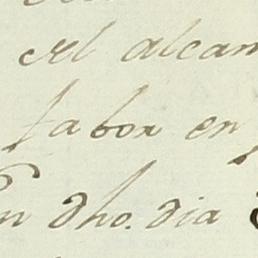 el alcan
labor en
En dho. dia